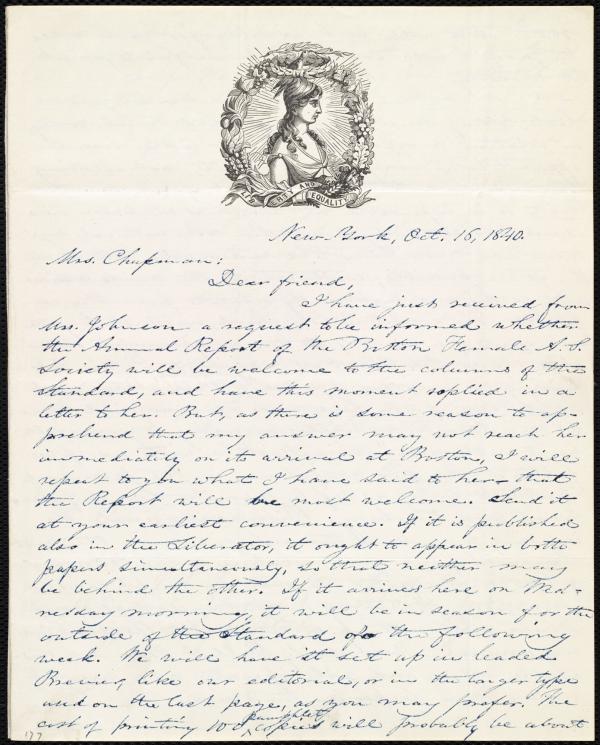 LIBERTY AND EQUALITY
New-York, Oct. 16, 1840.
Mrs. Chapman:
Dear friend,
I have just received from
Mrs. Johnson a request to be informed whether
the Annual Report of the Boston Female A. S.
Society will be welcome to the columns of the
Standard, and have this moment replied in a
letter to her. But, as there is some reason to ap-
prehend that my answer may not reach her
immediately on its arrival at Boston, I will
repeat to you what I have said to her—that
the Report will be most welcome. Send it
at your earliest convenience. If it is published
also in the Liberator, it ought to appear in both
papers simultaneously, so that neither may
be behind the other. If it arrives here on Wed-
nesday morning, it will be in season for the
outside of the Standard of the following
week. We will have it set up in leaded
Brevier, like our editorial, or in the larger type
used on the last page, as you may prefer. The
cost of printing 100 pamphlet copies will probably be about
177